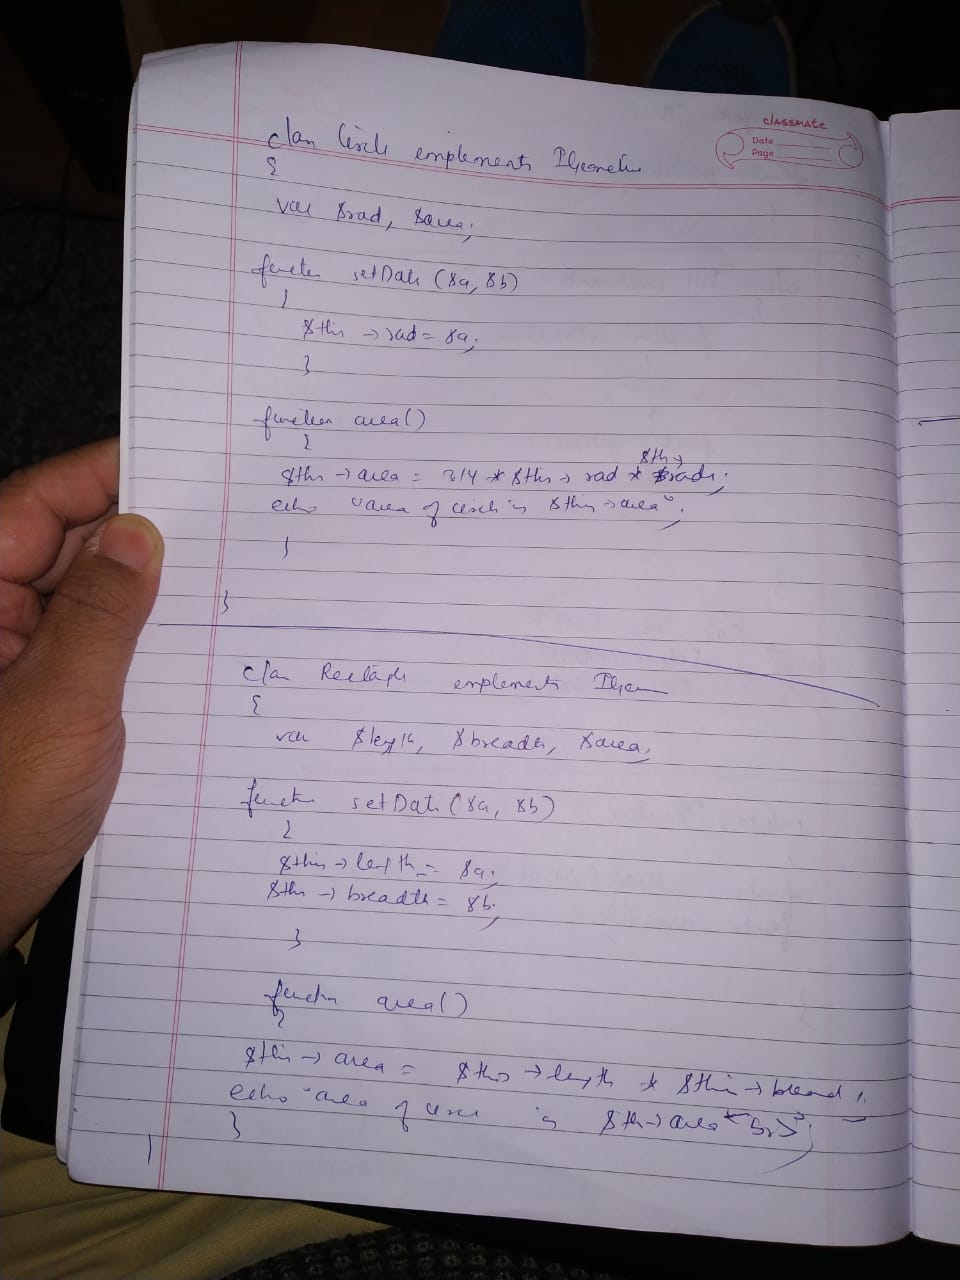 classmate
Date
Page
class Circle implements IGeometric
{
var $rad, $area;
function setData ($a, $b)
{
$this → rad = $a;
}
function area()
{
$th →
$this → area = 3.14 * $this → rad * $rad;
echo "area of circle is $this → area";
}
}
class Rectangle implements IGeom
{
var $length, $breadth, $area;
function setData ($a, $b)
{
$this → length = $a;
$this → breadth = $b;
}
function area()
{
$this → area = $this → length * $this → bread ;
echo "area of circle is $this → area <br>";
}
}